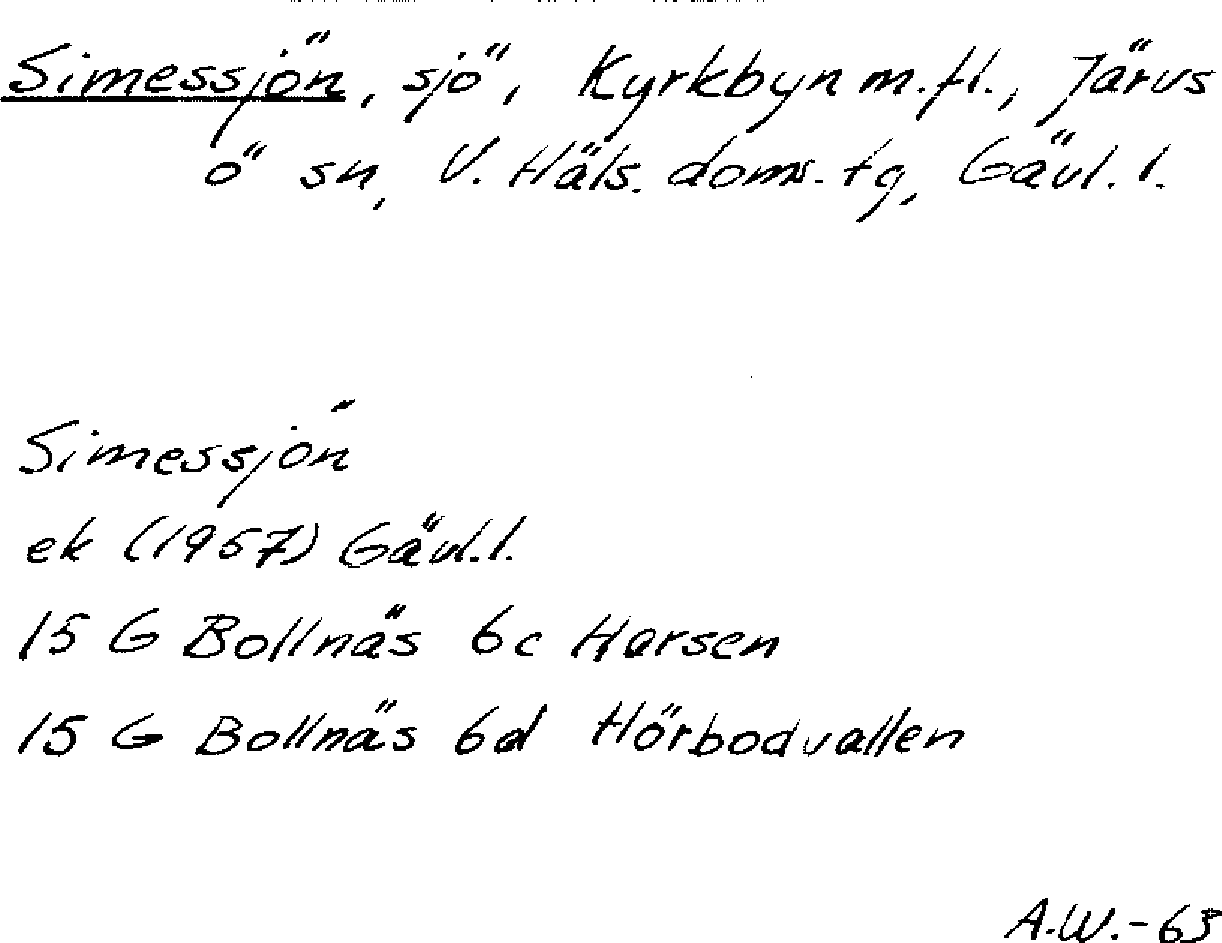 Simessjön, sjö, Kyrkbyn m.fl., Järvs
ö sn, V. Häls. doms. tg, Gävl. l.
Simessjön
ek (1957) Gävl. l.
15 G Bollnäs 6c Harsen
15 G Bollnäs 6d Hörbodvallen
A.W.-63